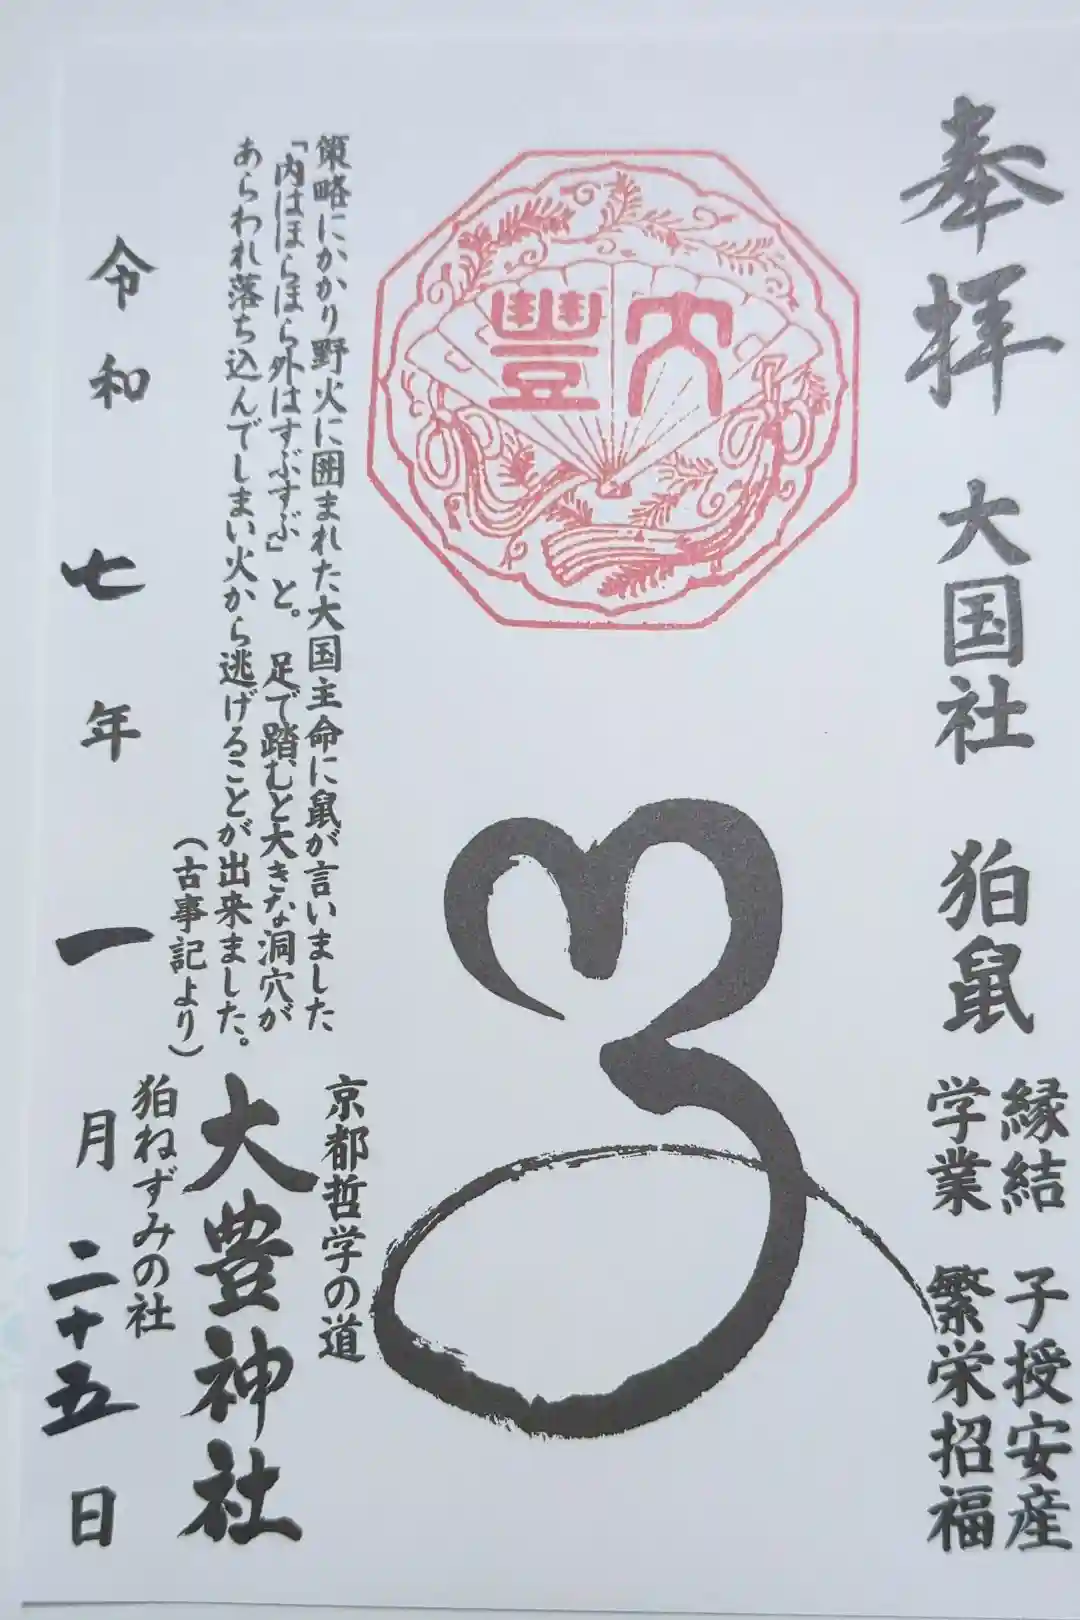 奉拝
大国社
狛鼠
縁結 子授安産
学業 繁栄招福
大豊
策略にかかり野火に囲まれた大国主命に鼠が言いました
「内はほらほら外はすぶすぶ」と。 足で踏むと大きな洞穴が
あらわれ落ち込んでしまい火から逃げることが出来ました。
(古事記より)
京都哲学の道
大豊神社
狛ねずみの社
令和七年一月二十五日